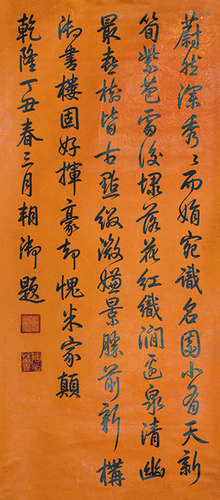 蔚然深秀秀而娟宛識名園小有天新
筍紫苞雷後埭落花紅織澗邊泉清幽
最喜樹皆古點綴激嫌景勝前新構
御書樓固好揮豪却愧米家顛
乾隆丁丑春三月相御題